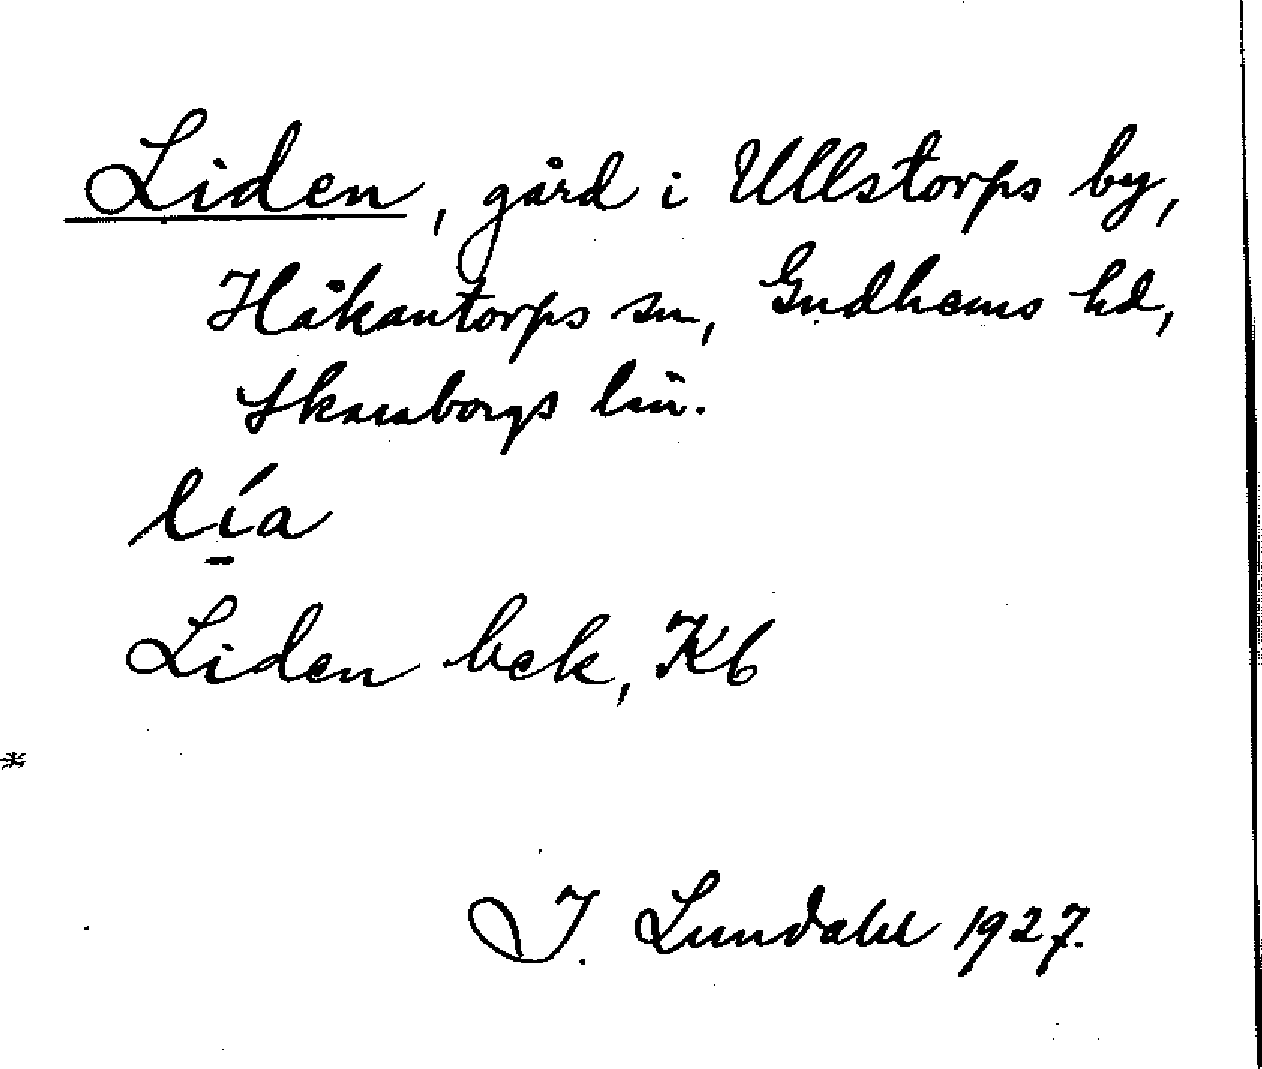 Liden, gård i Ullstorps by,
Håkantorps sn, Gudhems hd,
Skaraborgs län.
lía
Liden bek, Kb
*
J. Lundahl 1927.